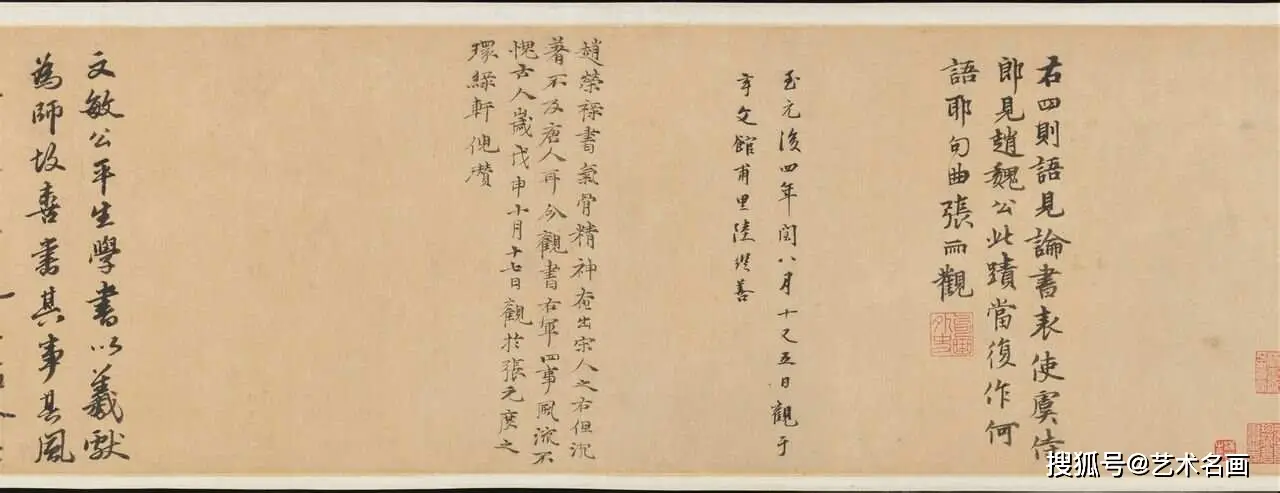 右四則語見論書表使虞侍
郎見趙魏公此蹟當復作何
語耶句曲張雨觀
至元後四年閏八月十又五日觀于
玄文館甫里陸繼善
趙榮祿書氣骨精神奄出宋人之右但沉
著不及唐人耳今觀書右軍四事風流不
愧古人歲戊申十月十七日觀於張元度之
環綠軒倪瓚
文敏公平生學書以羲獻
為師故喜書其事其風
搜狐号@艺术名画